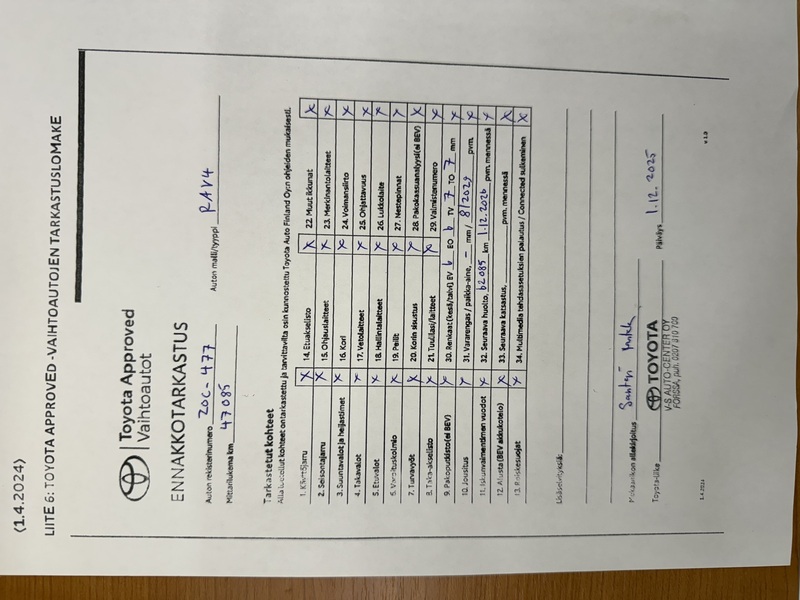 (1.4.2024)
LIITE 6: TOYOTA APPROVED -VAIHTOAUTOJEN TARKASTUSLOMAKE
Toyota Approved
Vaihtoautot
ENNAKKOTARKASTUS
Auton rekisterinumero ZOC-477 Auton malli/tyyppi RAV4
Mittarilukema km 47085
Tarkastetut kohteet
Alla luetellut kohteet on tarkastettu ja tarvittavilta osin kunnostettu Toyota Auto Finland Oy:n ohjeiden mukaisesti.
1. Käsijarru X 14. Etuakselisto X 22. Muut ikkunat X
2. Seisontajarru X 15. Ohjauslaitteet X 23. Merkinantolaitteet X
3. Suuntavalot ja heijastimet X 16. Kori X 24. Voimansiirto X
4. Takavalot X 17. Vetolaitteet X 25. Ohjattavuus X
5. Etuvalot X 18. Hallintalaitteet X 26. Lukkolaite X
6. Varoituskolmio X 19. Peilit X 27. Nestepinnat X
7. Turvavyöt X 20. Korin sisustus X 28. Pakokaasuanalyysi (ei BEV) X
8. Taka-akselisto X 21. Tuulilasi/laitteet X 29. Valmistenumero X
9. Pakoputkisto (ei BEV) X 30. Renkaat (kesä/talvi) EV 6 EO 6 TV 7 TO 7 mm X
10. Jousitus X 31. Vararengas / paikka-aine, - mm / 8/2029 pvm. X
11. Iskunvaimentimen vuodot X 32. Seuraava huolto, 62085 km 1.12.2026 pvm. mennessä X
12. Alusta (BEV akkukotelo) X 33. Seuraava katsastus, pvm. mennessä X
13. Roiskesuojat X 34. Multimedia tehdasasetuksien palautus / Connected sulkeminen X
Lisäselvityksiä:
Mekaanikon allekirjoitus Santeri
Toyota-liike TOYOTA Päiväys 1.12.2025
V-S AUTO-CENTER OY
FORSSA, puh. 0207 010 700
1.4.2024 v 1.2